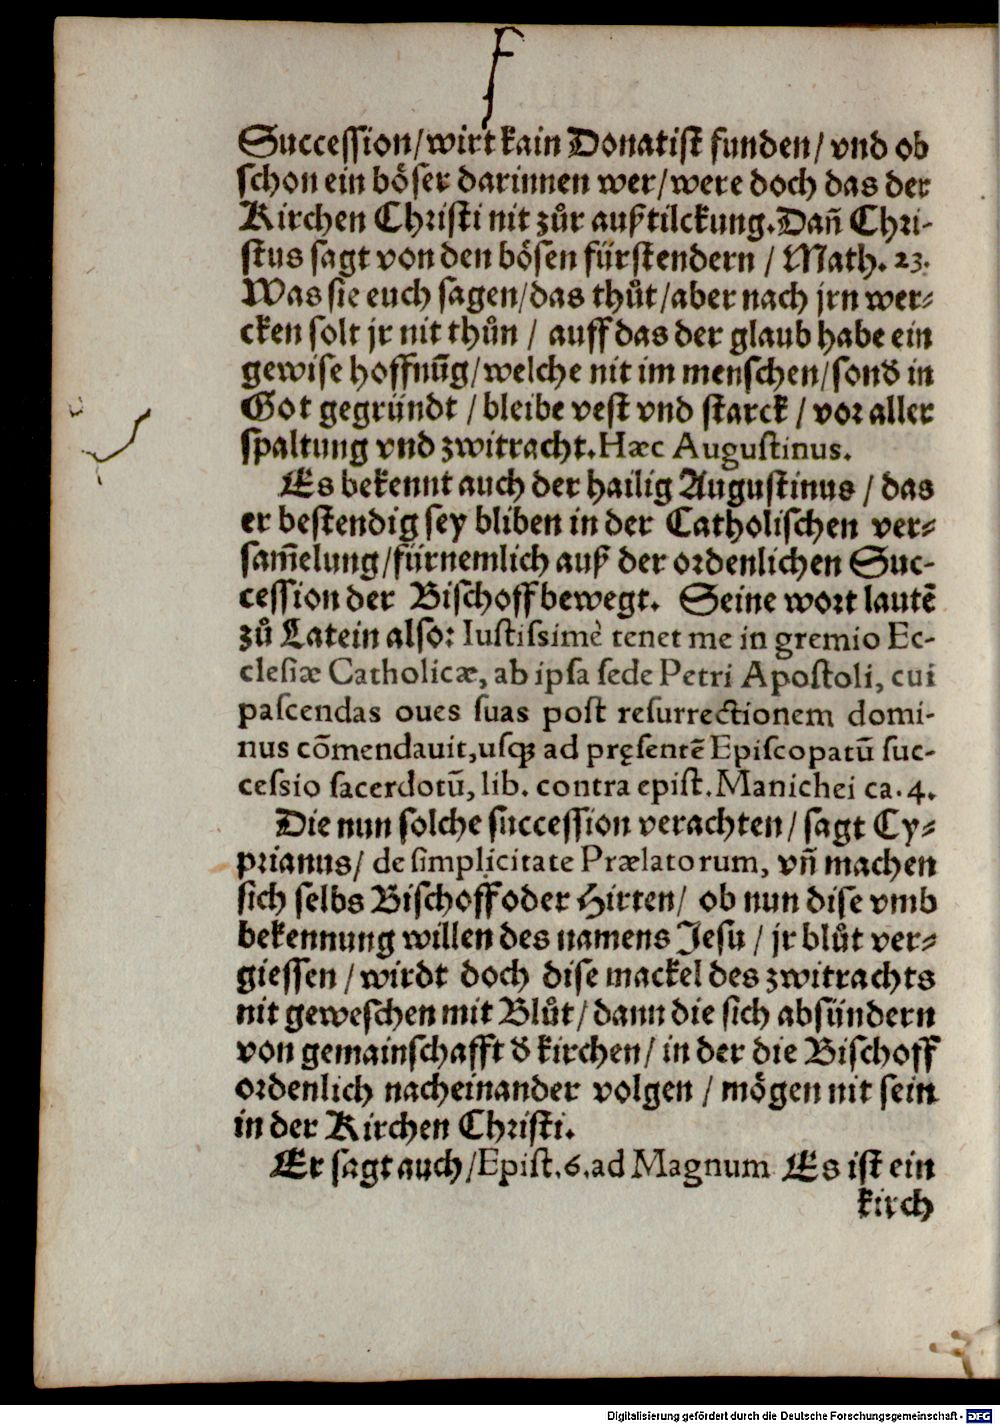 Succession/wirt kain Donatist funden/ vnd ob
schon ein böser darinnen wer/were doch das der
Kirchen Christi nit zůr außtilckung.Dañ Chri-
stus sagt von den bösen fürstendern / Math. 23.
Was sie euch sagen/das thůt/aber nach jrn wer-
cken solt jr nit thůn / auff das der glaub habe ein
gewise hoffnūg/welche nit im menschen/sond in
Got gegründt /bleibe vest vnd starck / vor aller
spaltung vnd zwitracht.Hæc Augustinus.
Es bekennt auch der hailig Augustinus / das
er bestendig sey bliben in der Catholischen ver-
sam̄elung/fürnemlich auß der ordenlichen Suc-
cession der Bischoff bewegt. Seine wort lautē
zů Latein also: Iustissimè tenet me in gremio Ec-
clesiæ Catholicæ, ab ipsa sede Petri Apostoli, cui
pascendas oues suas post resurrectionem domi-
nus cōmendauit,usqꝫ ad pręsentē Episcopatū suc-
cessio sacerdotū, lib. contra epist.Manichei ca.4.
Die nun solche succession verachten/ sagt Cy-
prianus/ de simplicitate Prælatorum, vñ machen
sich selbs Bischoff oder Hirten/ ob nun dise vmb
bekennung willen des namens Jesu / jr blůt ver-
giessen / wirdt doch dise mackel des zwitrachts
nit geweschen mit Blůt/ dann die sich absündern
von gemainschafft d kirchen/ in der die Bischoff
ordenlich nacheinander volgen / mögen nit sein
in der Kirchen Christi.
Er sagt auch/Epist.6.ad Magnum Es ist ein
kirch
Digitalisierung gefördert durch die Deutsche Forschungsgemeinschaft - DFG